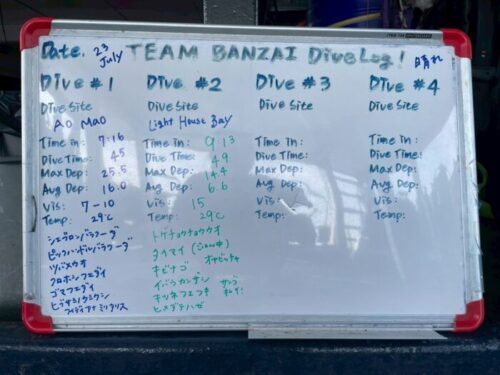 Date. 23 July TEAM BANZAI Dive Log! 晴れ
Dive #1
Dive Site
AO MAO
Time in: 7:16
Dive Time: 45
Max Dep: 25.5
Avg Dep: 16.0
Vis: 7-10
Temp: 29℃
シェブロンバラクーダ
ピックハンドルバラクーダ
ツバメウオ
クロホシフエダイ
ゴマフエダイ
Dive #2
Dive Site
Light House Bay
Time in: 9:13
Dive Time: 49
Max Dep: 14.4
Avg Dep: 6.6
Vis: 15
Temp: 29℃
トゲチョウチョウウオ
タイマイ
キビナゴ オヤビッチャ
イバラカンザシ サンゴ
キツネフエフキ キレイ!
ヒメダテハゼ
Dive #3
Dive Site
Time in:
Dive Time:
Max Dep:
Avg Dep:
Vis:
Temp:
Dive #4
Dive Site
Time in:
Dive Time:
Max Dep:
Avg Dep:
Vis:
Temp: